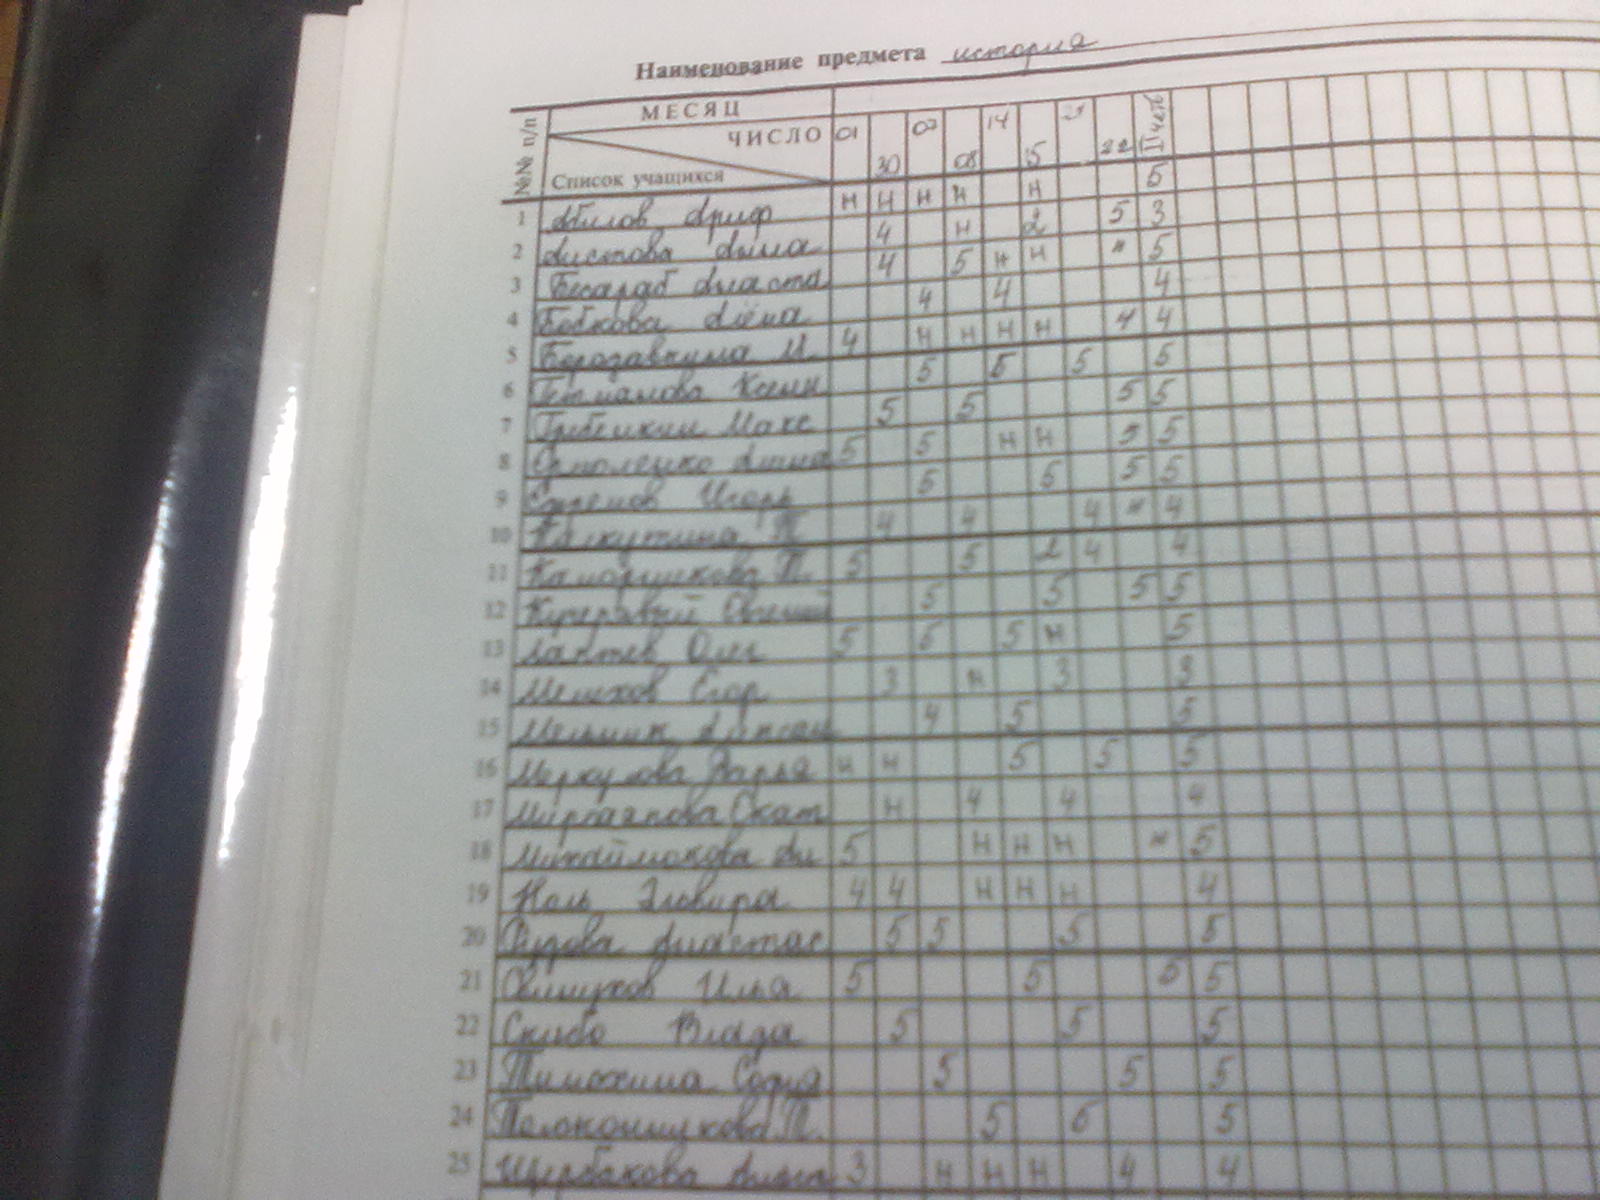 Наименование предмета история
№№ п/п МЕСЯЦ
ЧИСЛО 01 30 07 08 14 15 21 22 II четв
Список учащихся
1 Абилов Ариф н н н н н 5
2 Алина 4 н 2 5 3
3 Бесараб Анаста 4 5 н н н 5
4 Бобкова Алёна 4 4 4
5 4 н н н н 4 4
6 5 5 5 5
7 Гребенкин Макс 5 5 5 5
8 Ермоленко Анна 5 5 н н 5 5
9 Ефремов Игорь 5 5 5 5
10 4 4 4 н 4
11 5 5 2 4 4
12 Кучерявый Евгений 5 5 5 5
13 Лаптев Олег 5 5 5 н 5
14 Мелехов Егор 3 н 3 3
15 Мельник 4 5 5
16 Меркулова Дарья н н 5 5 5
17 н 4 4 4
18 5 н н н н 5
19 Ноль Эльвира 4 4 н н н 4
20 Анастас 5 5 5 5
21 Илья 5 5 5 5
22 Скибо Влада 5 5 5
23 Тимохина София 5 5 5
24 5 5 5
25 Щербакова 3 н н н 4 4